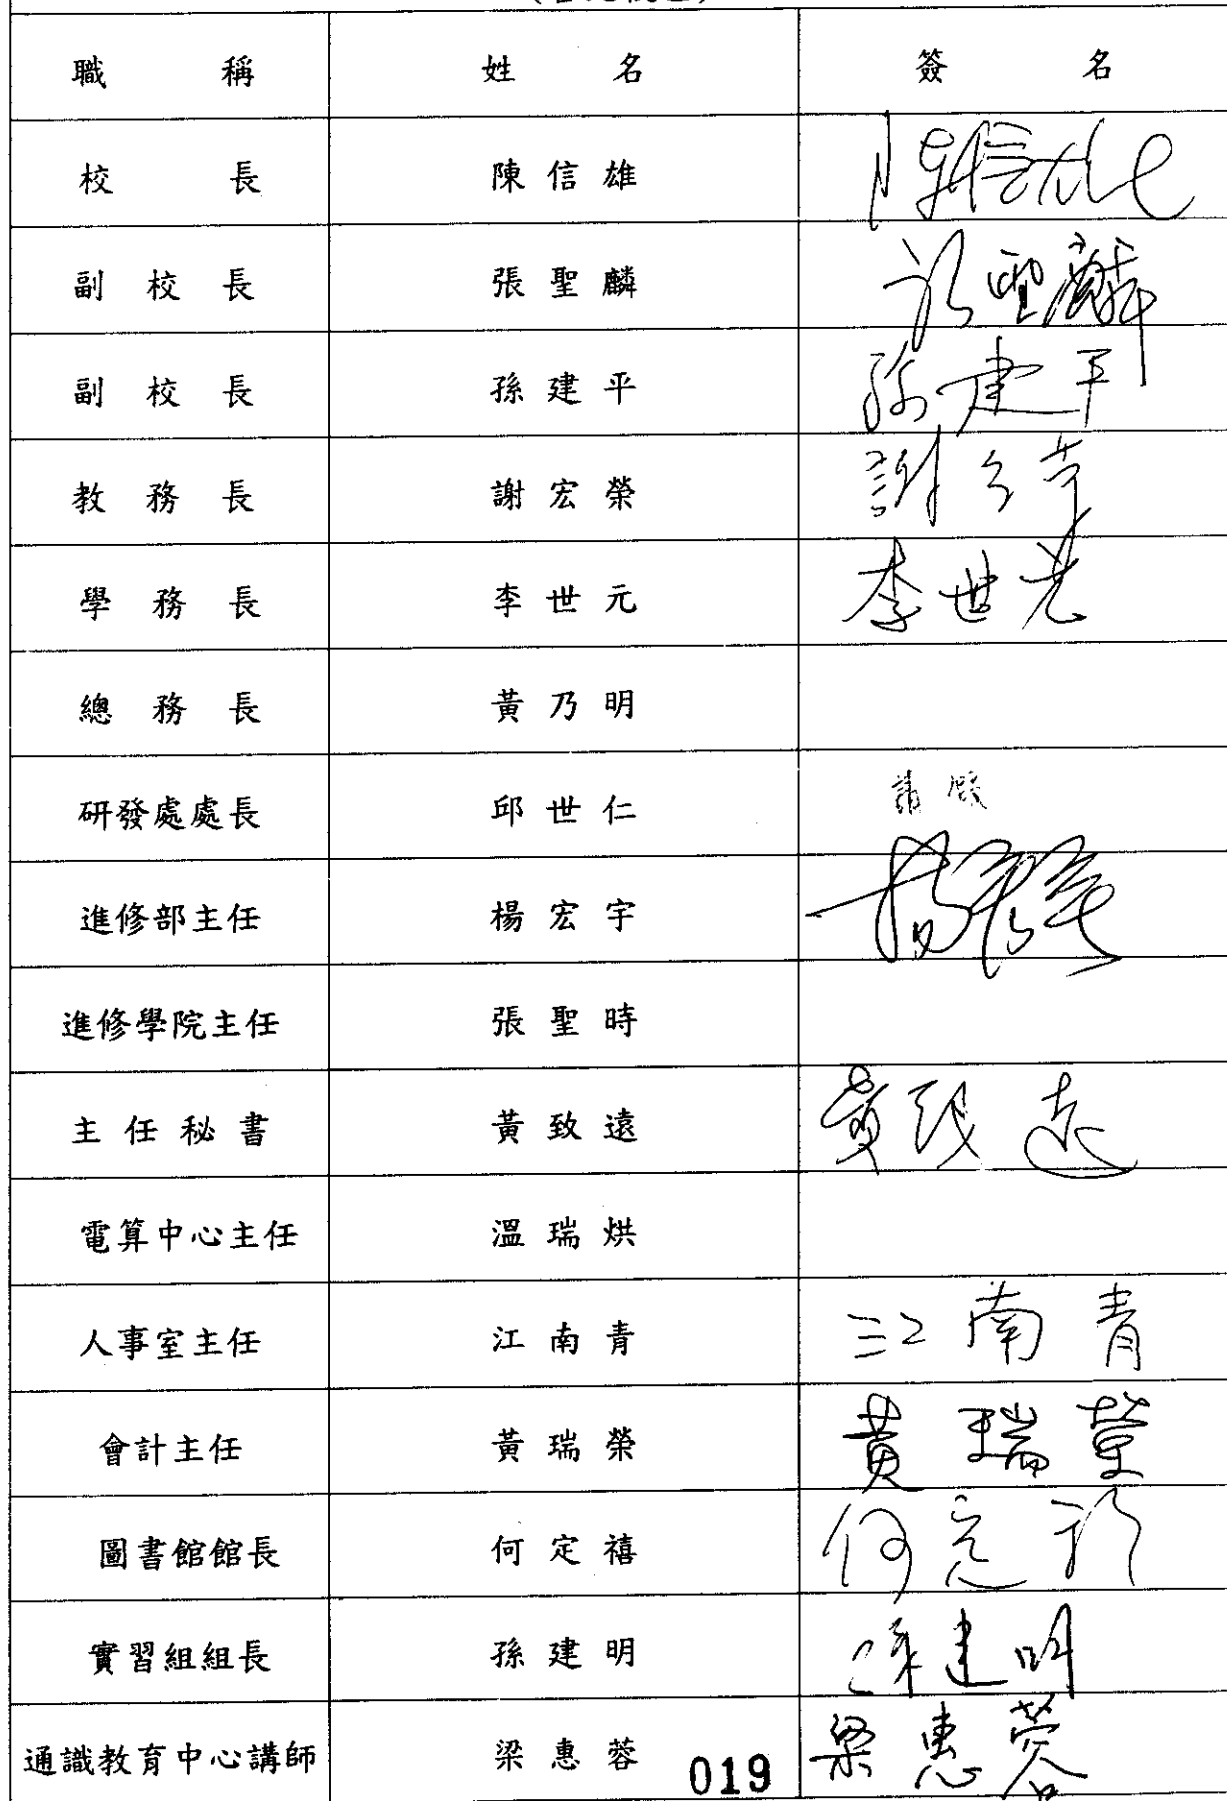 職稱 姓名 簽名
校長 陳信雄 陳信雄
副校長 張聖麟 張聖麟
副校長 孫建平 孫建平
教務長 謝宏榮 謝宏榮
學務長 李世元 李世元
總務長 黃乃明
研發處處長 邱世仁 請假
進修部主任 楊宏宇 楊宏宇
進修學院主任 張聖時
主任秘書 黃致遠 黃致遠
電算中心主任 溫瑞烘
人事室主任 江南青 江南青
會計主任 黃瑞榮 黃瑞榮
圖書館館長 何定禧 何定禧
實習組組長 孫建明 孫建明
通識教育中心講師 梁惠蓉 梁惠蓉
019